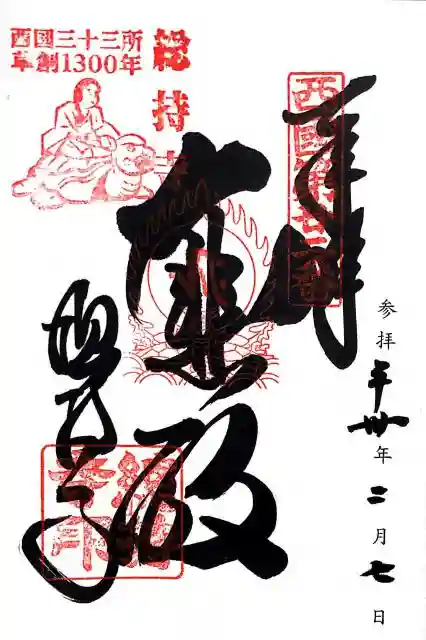 西國三十三所
草創1300年
総持寺
西國第廿二番
奉拝
大悲殿
総持寺
参拝平卅年二月七日